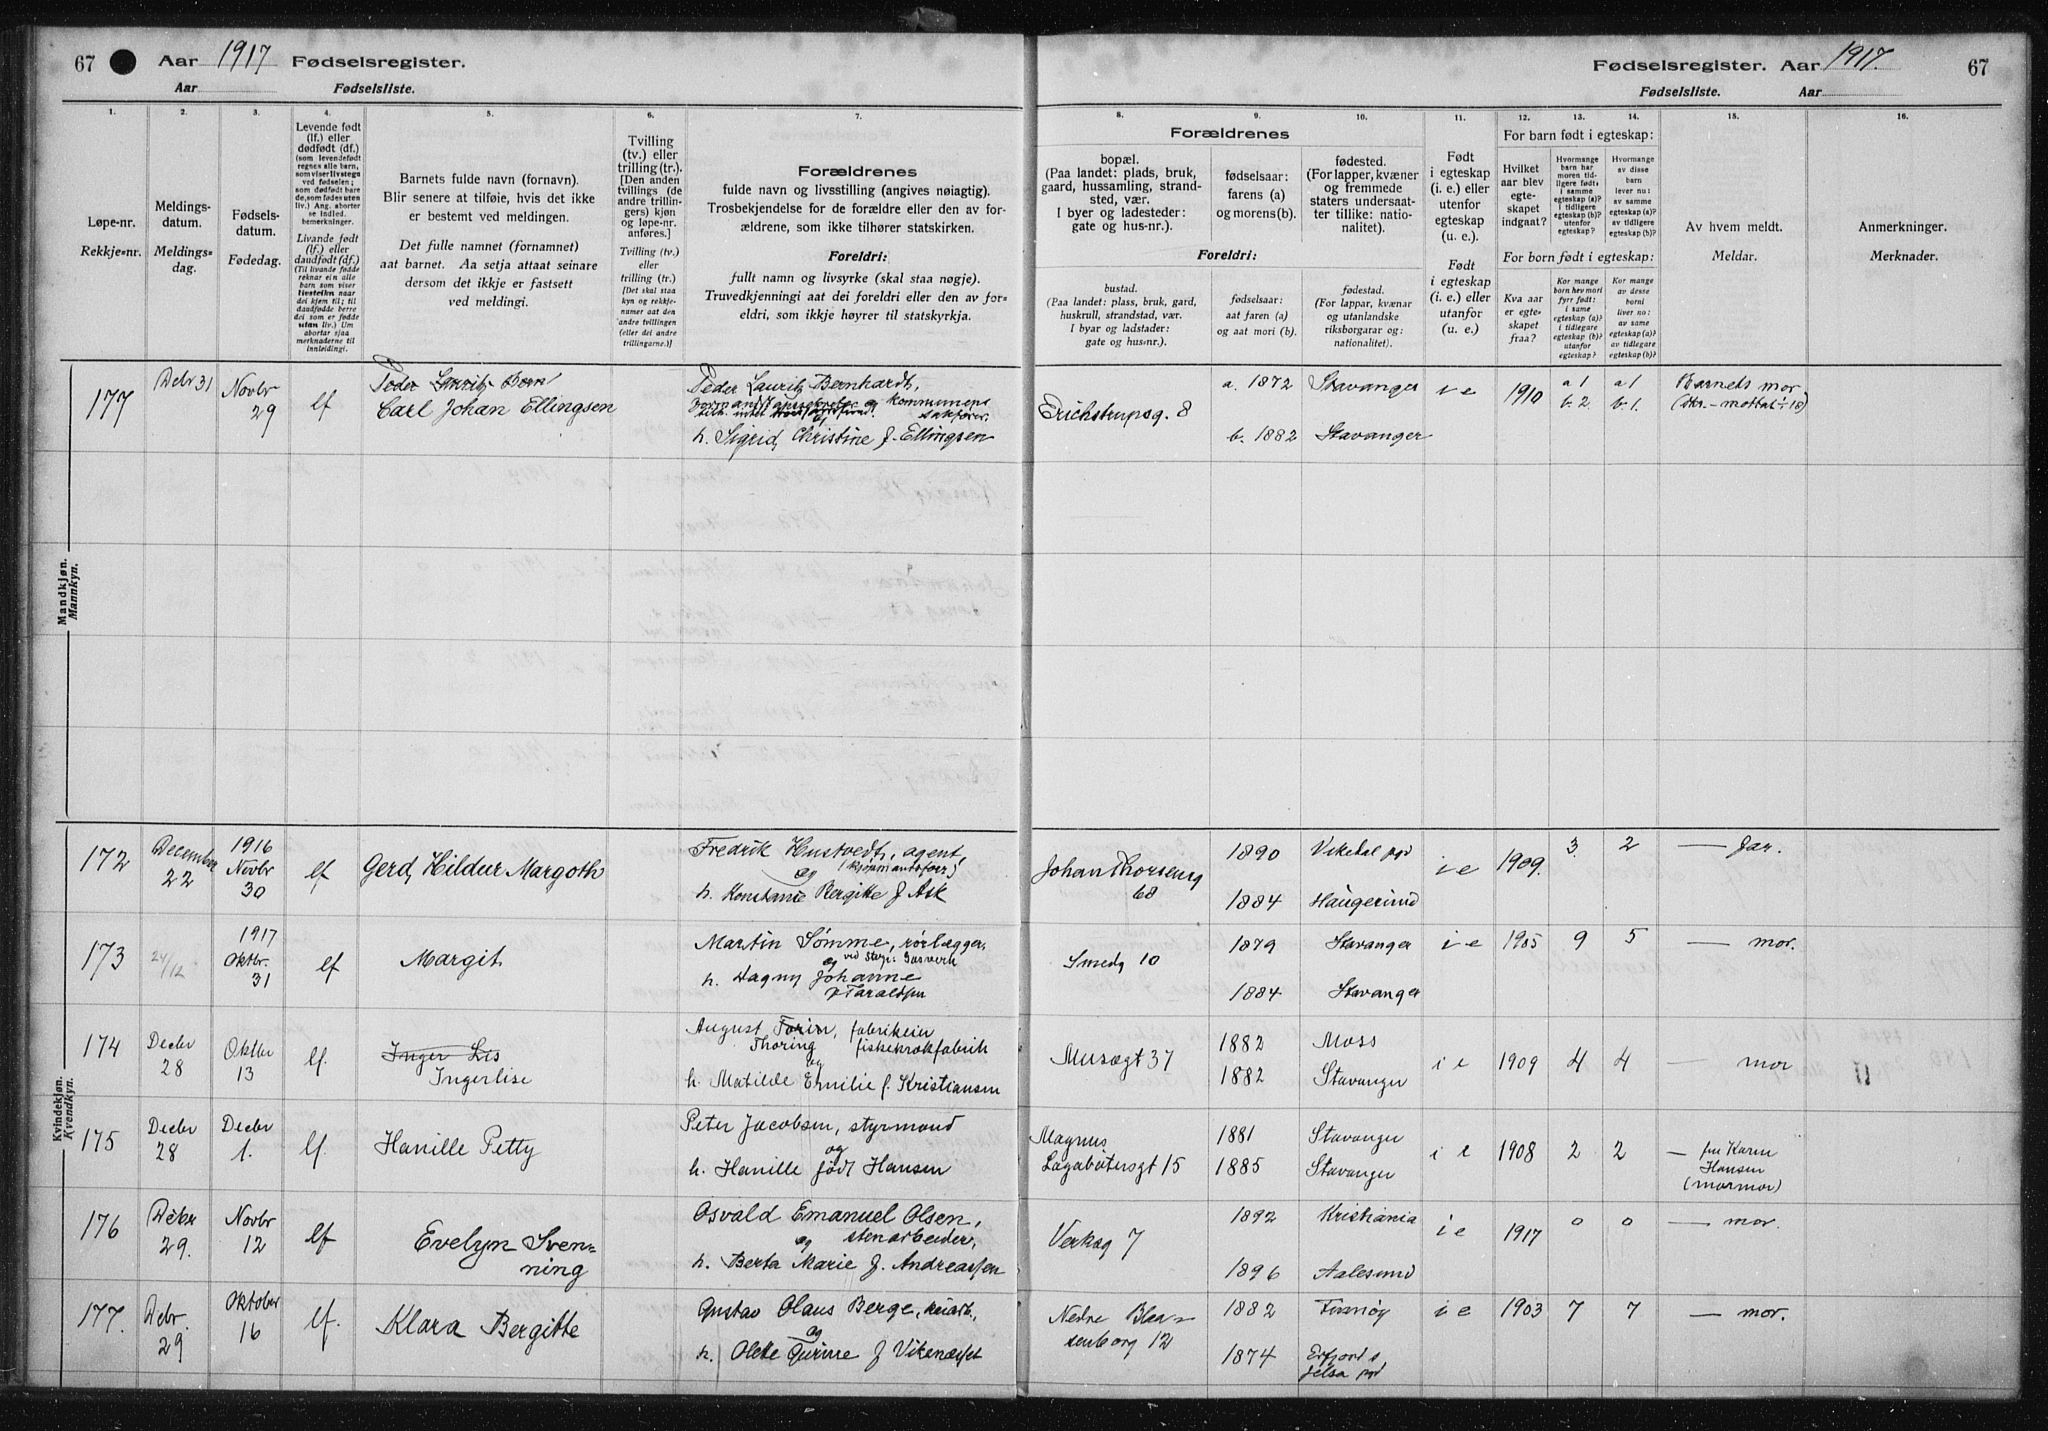 67 Aar 1917 Fødselsregister.
Aar Fødselsliste.
Fødselsregister. Aar 1917. 67
Fødselsliste. Aar
1. 2. 3. 4. 5. 6. 7. 8. 9. 10. 11. 12. 13. 14. 15. 16.
Løpe-nr.
Rekkje-nr.
Meldings-
datum.
Meldings-
dag.
Fødsels-
datum.
Fødedag.
Levende født
(lf.) eller
dødfødt (df.)
(som levendefødt
regnes alle barn,
som viser livstegn
ved fødselen;
som dødfødt bare
de, som fødes uten
liv.) Ang. aborter
se indled.
bemerkninger.
Livande født
(lf.) eller
daudfødt (df.)
(Til livande fødde
reknar ein alle
born som viser
livsteikn naar
dei kjem til; til
daudfødde berre
dei som er fødde
utan liv.) Um
abortar sjaa
merknaderne til
innleidingi.
Barnets fulde navn (fornavn).
Blir senere at tilføie, hvis det ikke
er bestemt ved meldingen.
Det fulle namnet (fornamnet)
aat barnet. Aa setja attaat seinare
dersom det ikkje er fastsett
ved meldingi.
Tvilling
(tv.) eller
trilling (tr.).
[Den anden
tvillings (de
andre trillin-
gers) kjøn
og løpe-nr.
anføres.]
Tvilling (tv.)
eller
trilling (tr.)
[Det skal staa
kyn og rekkje-
numer aat den
andre tvillingen
(eller dei andre
trillingarne.)]
Forældrenes
fulde navn og livsstilling (angives nøiagtig).
Trosbekjendelse for de forældre eller den av for-
ældrene, som ikke tilhører statskirken.
Foreldri:
fullt namn og livsyrke (skal staa nøgje).
Truvedkjenningi aat dei foreldri eller den av for-
eldri, som ikkje høyrer til statskyrkja.
Forældrenes
bopæl.
(Paa landet: plads, bruk,
gaard, hussamling, strand-
sted, vær.
I byer og ladesteder:
gate og hus-nr.).
fødselsaar:
farens (a)
og morens (b).
fødested.
(For lapper, kvæner
og fremmede
staters undersaat-
ter tillike: natio-
nalitet).
Foreldri:
bustad.
(Paa landet: plass, bruk, gard,
huskrull, strandstad, vær.
I byar og ladstader:
gate og hus-nr.).
fødselsaar:
aat faren (a)
og aat mori (b).
fødestad.
(For lappar, kvænar
og utanlandske
riksborgarar og:
nationalitet).
Født
i egteskap
(i. e.) eller
utenfor
egteskap
(u. e.).
Født
i egteskap
(i. e.) eller
utanfor
(u. e.)
For barn født i egteskap:
Hvilket
aar blev
egte-
skapet
indgaat?
Hvormange
barn har
moren tid-
ligere født:
i samme
egteskap (a)?
i tidligere
egteskap (b)?
utenfor
egteskap?
Hvormange
av disse
barn
lever nu:
av samme
egteskap (a)?
av tidligere
egteskap (b)?
For born født i egteskap:
Kva aar
er egte-
skapet
fraa?
Kor mange
born hev mori
fyrr født:
i same
egteskap (a)?
i tidlegare
egteskap (b)?
utanfor
egteskap?
Kor mange
av desse
borni
liver no:
av same
egteskap (a)?
av tidlegare
egteskap (b)?
Av hvem meldt.
Meldar.
Anmerkninger.
Merknader.
Mandkjøn.
Mannkyn.
177 Debr 31 Novbr 29 lf Peder Lauritz Bern
Carl Johan Ellingsen
Peder Lauritz Bernhardt,
og kommunens
sakfører
h. Sigrid Christine f. Ellingsen
Erichstrupsg. 8
a. 1872 Stavanger
b. 1882 Stavanger
i e 1910 a 1 b. 2 a 1 b. 1. Barnets mor
Kvindekjøn.
Kvendkyn.
172 December 22 1916 Novbr 30 lf Gerd Hildur Margoth
Fredrik Hustvedt, agent,
og
h. Konstance Bergitte f Ask
Johan Thorseng 68
1890 Vikedal pgd
1884 Haugesund
i e 1909. 3. 2 — far.
173 24/12 1917 Oktbr. 31 lf Margit
Martin Sømme, rørlægger,
og ved Stvgr. Gasverk
h. Dagny Johanne
f Taraldsen
Smedg 10
1879 Stavanger
1884 Stavanger
i e 1905 9 5 — mor.
174 Decbr 28 Oktbr 13 lf. Inger Lis
Ingerlise
August Torin, fabrikeier
Thoring fiskekrokfabrik
og
h. Matilde Emilie f. Kristiansen
Musægt 37
1882 Moss
1882 Stavanger
i e 1909 4 4 — mor
175 Decbr 28 Decbr 1. lf. Hanille Petty
Peter Jacobsen, styrmand
og
h. Hanille født Hansen
Magnus
Lagabøtersgt 15
1881 Stavanger
1885 Stavanger
i e 1908 2 2 — fru Karen
Hansen
(mormor)
176 Debr 29. Novbr 12 lf Evelyn Sven-
ning
Osvald Emanuel Olsen,
og stenarbeider,
h. Berta Marie f. Andreassen
Verksg 7
1892 Kristiania
1896 Aalesund
i e 1917 0 0 — mor.
177. Debr. 29 Oktober 16 lf. Klara Bergitte
Gustav Olaus Berge,
og
h. Olette Gurine f Vikenæsset
Nedre Blaa-
senborg 12
1882 Finnøy
1874 Erfjord i
Jelsa pgd
i e 1903 7 7 — mor.